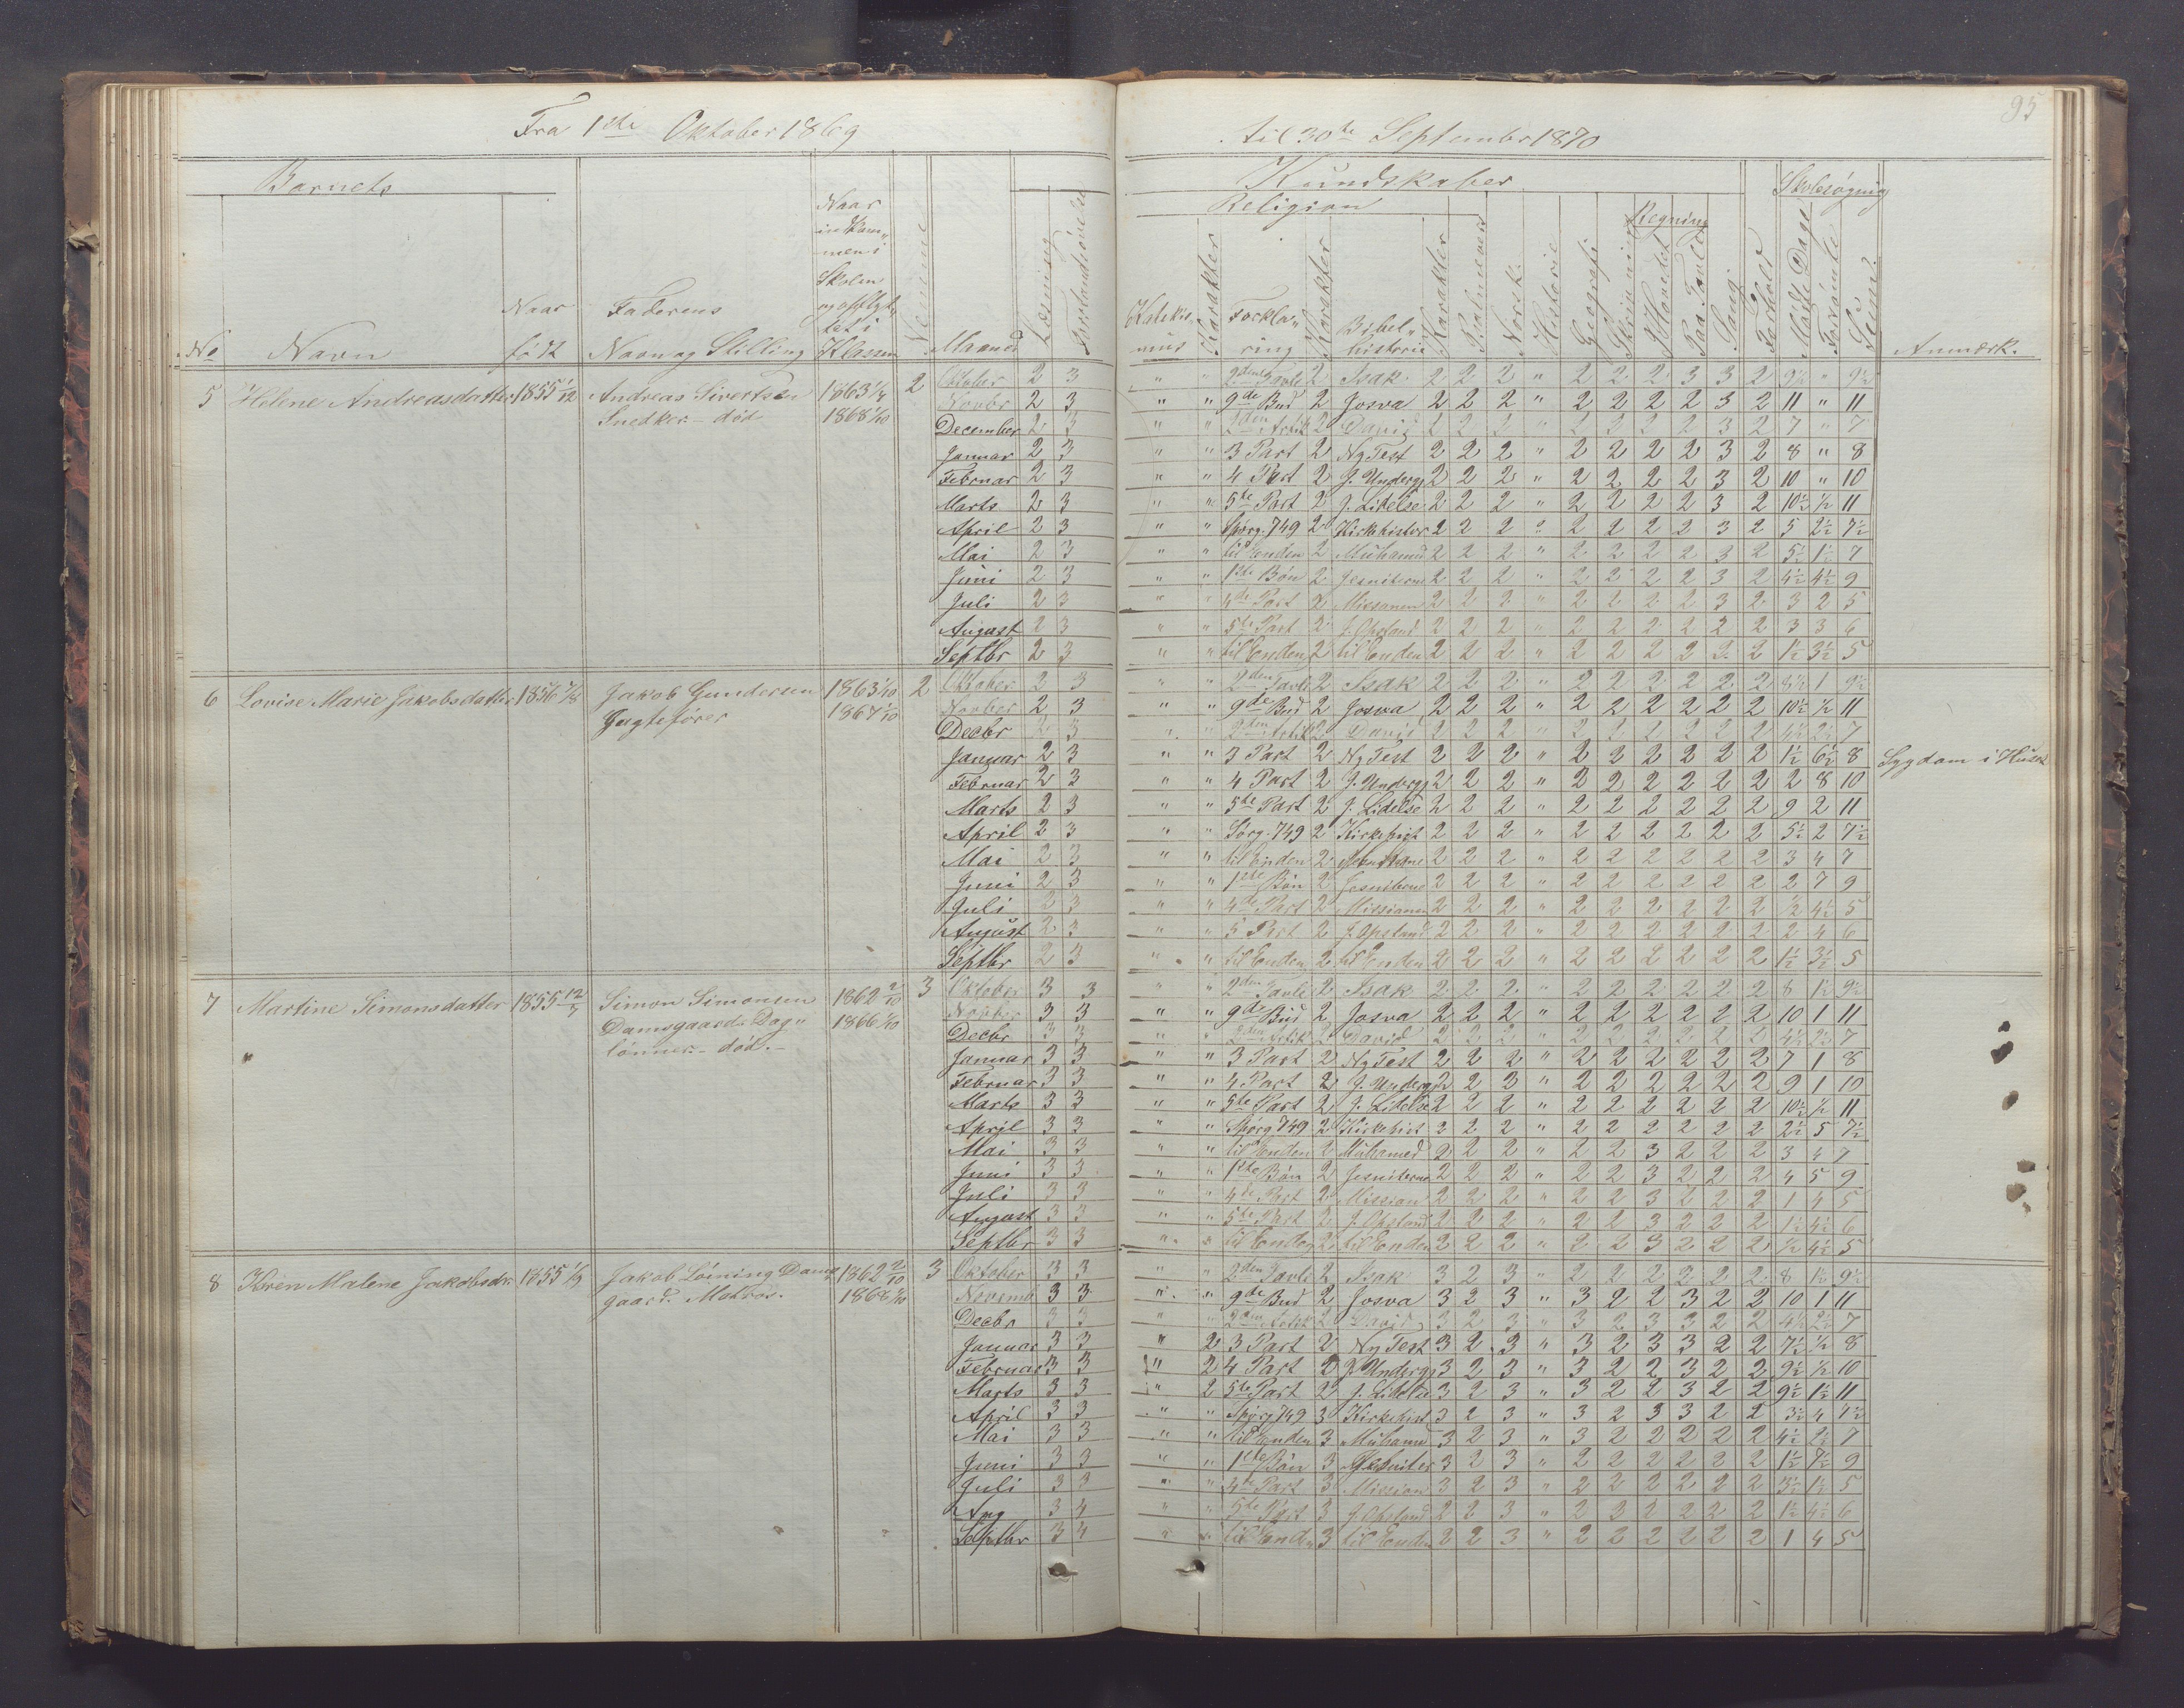 95
Fra 1ste Oktober 1869 til 30te September 1870
Barnets
Kundskaber
Skolesøgning
Religion
Regning
No
Navn
Naar
født
Faderens
Navn og Stilling
Naar
indkom„
men i
Skolen
og opflyt„
tet i
Klassen
Nemme
Maaned
Læsning
Forstandsøvelse
Katekis„
mus
Karakter
Forkla„
ring
Karakter
Bibel„
historie
Karakter
Psalmevers
Norsk
Historie
Geografi
Skrivning
I Hovedet
Paa Tavle
Sang
Forhold
Mødte Dage
Forsømte
Sum
Anmærk.
5 Helene Andreasdatter 1855 1/12 Andreas Sivertsen 1863 1/4 2 Oktober 2 3 " " 2den Tavle 2 Isak 2 2 2 " 2 2 2 3 3 2 9½ " 9½
Snedker - død 1868 1/10 Novbr 2 3 " " 9de Bud 2 Josva 2 2 2 " 2 2 2 2 3 2 11 " 11
December 2 3 " " 2den Artik 2 David 2 2 2 " 2 3 2 2 3 2 7 " 7
Januar 2 3 " " 3 Part 2 Ny Test 2 2 2 " 2 2 2 2 3 2 8 " 8
Februar 2 3 " " 4 Part 2 J. Underg. 2 2 2 " 2 2 2 2 3 2 10 " 10
Marts 2 3 " " 5te Part 2 J. Lidelse 2 2 2 " 2 2 2 2 3 2 10½ ½ 11
April 2 3 " " Spørg. 749 2 Kirkehistor 2 2 2 " 2 2 2 2 3 2 5 2½ 7½
Mai 2 3 " " til Enden 2 Muhamed 2 2 2 " 2 2 2 2 3 2 5½ 1½ 7
Juni 2 3 " " 1ste Bøn 2 Jesuiterne 2 2 2 " 2 2 2 2 3 2 4½ 4½ 9
Juli 2 3 " " 4de Part 2 Missonen 2 2 2 " 2 2 2 2 3 2 3 2 5
August 2 3 " " 5te Part 2 J. Opstand 2 2 2 " 2 2 2 2 2 2 3 3 6
Septbr 2 3 " " til Enden 2 til Enden 2 2 2 " 2 2 2 2 2 2 1½ 3½ 5
6 Lovise Marie Jakobsdatter 1856 Jakob Gundersen 1863 1/10 2 Oktober 2 3 " " 2den Tavle 2 Isak 2 2 2 " 2 2 2 2 2 2 8½ 1 9½
Jagtefører 1867 1/10 Novbr 2 3 " " 9de Bud 2 Josva 2 2 2 " 2 2 2 2 2 2 10½ ½ 11
Decbr 2 3 " " 2den Artik 2 David 2 2 2 " 2 2 2 2 2 2 4½ 2½ 7
Januar 2 3 " " 3 Part 2 Ny Test 2 2 2 " 2 2 2 2 2 2 1½ 6½ 8 Sygdom i Huset
Februar 2 3 " " 4 Part 2 J. Underg. 2 2 2 " 2 2 2 2 2 2 2 8 10
Marts 2 3 " " 5te Part 2 J. Lidelse 2 2 2 " 2 2 2 2 2 2 9 2 11
April 2 3 " " Sørg. 749 2 Kirkehist 2 2 2 " 2 2 2 2 2 2 5½ 2 7½
Mai 2 3 " " til Enden 2 2 2 2 " 2 2 2 2 2 2 3 4 7
Juni 2 3 " " 1ste Bøn 2 Jesuiterne 2 2 2 " 2 2 2 2 2 2 2 7 9
Juli 2 3 " " 4de Part 2 Missionen 2 2 2 " 2 2 2 2 2 2 ½ 4½ 5
August 2 3 " " 5 Part 2 J. Opstand 2 2 2 " 2 2 2 2 2 2 2 4 6
Septbr 2 3 " " til Enden 2 til Enden 2 2 2 " 2 2 2 2 2 2 1½ 3½ 5
7 Martine Simonsdatter 1855 12/7 Simon Simonsen 1862 2/10 3 Oktober 3 3 " " 2den Tavle 2 Isak 2 2 2 " 2 2 2 2 2 2 8 1½ 9½
Damsgaard. Dag„ 1866 1/10 Novbr 3 3 " " 9de Bud 2 Josva 2 2 2 " 2 2 2 2 2 2 10 1 11
lønner. - død. - Decbr 3 3 " " 2den Artik 2 David 2 2 2 " 2 2 2 2 2 2 4½ 2½ 7
Januar 3 3 " " 3 Part 2 Ny Test 2 2 2 " 2 2 2 2 2 2 7 1 8
Februar 3 3 " " 4 Part 2 J. Underg. 2 2 2 " 2 2 2 2 2 2 9 1 10
Marts 3 3 " " 5te Part 2 J. Lidelse 2 2 2 " 2 2 2 2 2 2 10½ ½ 11
April 3 3 " " Spørg 749 2 Kirkehist 2 2 2 " 2 2 2 2 2 2 2½ 5 7½
Mai 3 3 " " til Enden 2 Muhamed 2 2 2 " 2 2 3 2 2 2 3 4 7
Juni 3 3 " " 1ste Bøn 2 Jesuiterne 2 2 2 " 2 2 3 2 2 2 4 5 9
Juli 3 3 " " 4de Part 2 Mission 2 2 2 " 2 2 3 2 2 2 1 4 5
August 3 3 " " 5te Part 2 J. Opstand 2 2 2 " 2 2 3 2 2 2 1½ 4½ 6
Septbr 3 3 " " til Enden 2 til Enden 2 2 2 " 2 2 3 2 2 2 ½ 4½ 5
8 Karen Malene Jakobsdr. 1855 1/9 Jakob Løining Dams 1862 2/10 3 Oktober 3 3 " " 2den Tavle 2 Isak 3 2 3 " 2 2 2 2 2 2 8 1½ 9½
gaard. Matros. 1868 1/10 Novemb 3 3 " " 9de Bud 2 Josva 3 2 3 " 3 2 2 3 2 2 10 1 11
Decbr 3 3 " " 2den Artik 2 David 3 2 3 " 3 2 3 3 2 2 4½ 2½ 7
Januar 3 3 " 2 3 Part 2 Ny Test 3 2 3 " 3 2 3 3 2 2 7½ ½ 8
Februar 3 3 " 2 4 Part 2 J. Underg. 3 2 3 " 3 2 2 3 2 2 9½ ½ 10
Marts 3 3 " 2 5te Part 2 J. Lidelse 3 2 3 " 3 2 2 3 2 2 9½ 1½ 11
April 3 3 " " Spørg 749 3 Kirkehist 3 2 3 " 3 2 3 3 2 2 3½ 4 7½
Mai 3 3 " " til Enden 3 Muhamed 3 2 3 " 3 2 2 2 2 2 4½ 2½ 7
Juni 3 3 " " 1ste Bøn 3 Jesuiter 3 2 3 " 2 2 2 2 2 2 1½ 7½ 9
Juli 3 3 " " 4de Part 3 Mission 3 2 3 " 2 2 2 2 2 2 3½ 1½ 5
Aug 3 4 " " 5te Part 3 J. Opstand 2 2 3 " 2 2 2 2 2 2 1½ 4½ 6
Septbr 3 4 " " til Enden 3 til Enden 2 2 3 " 2 2 2 2 2 2 1 4 5